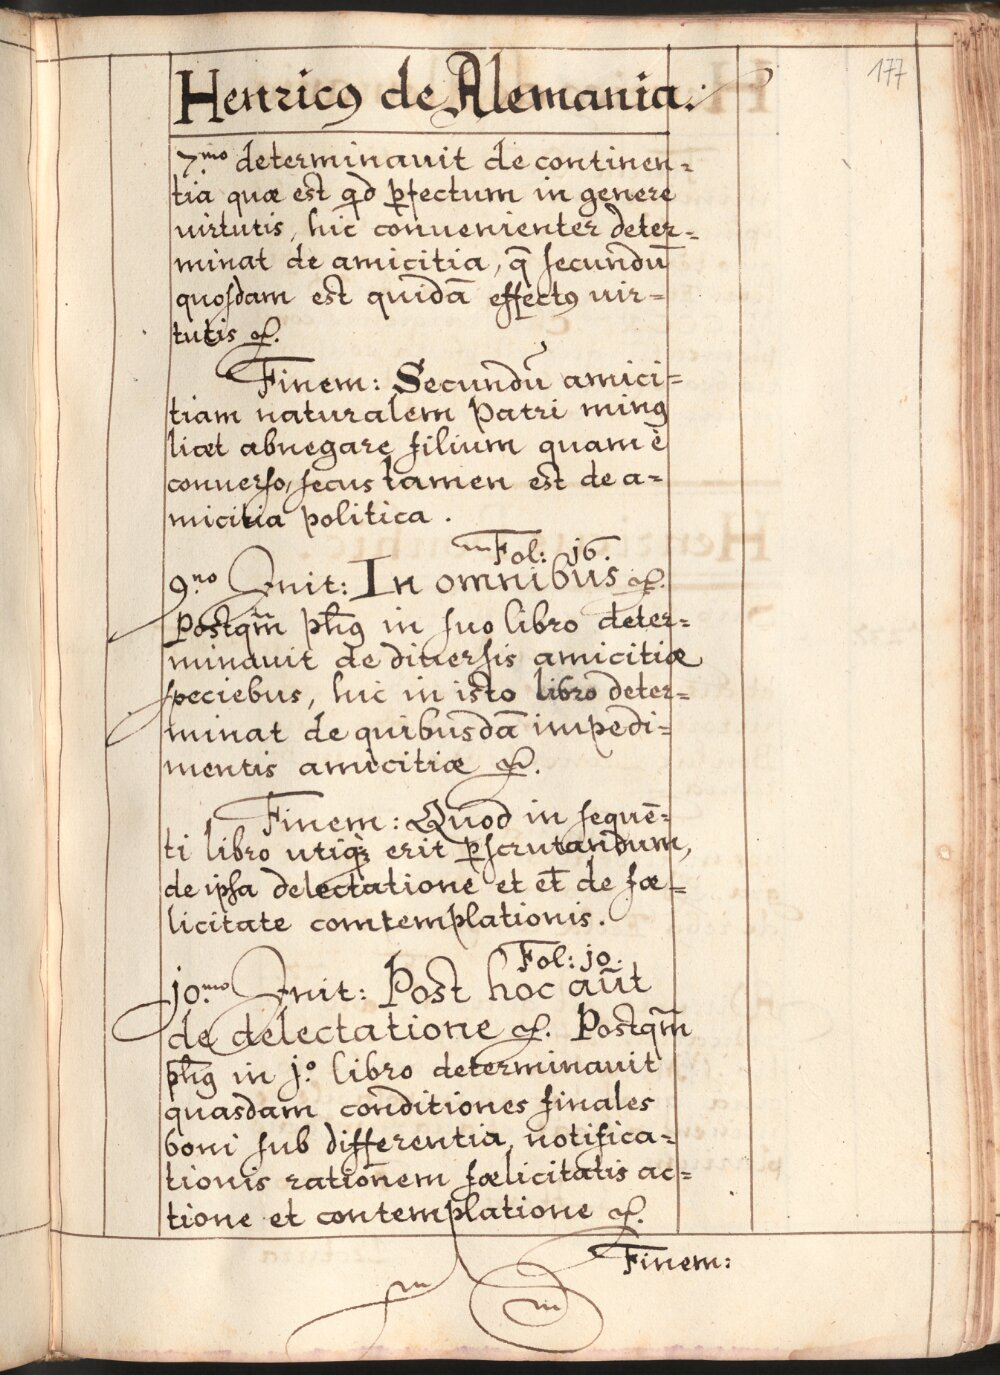 177
Henricꝰ de Alemania.
7.mo determinauit de continen=
tia quæ est qd̄ ꝑfectum in genere
uirtutis, hic conuenienter deter=
minat de amicitia, q̄ secundū
quosdam est quidā effectꝰ uir=
tutis &.
Finem: Secundū amici=
tiam naturalem Patri minꝰ
licet abnegare filium quam è
conuerso, secus tamen est de a=
micitia politica.
Fol: j6.
9.no Init: In omnibus &.
Postqm̄ ph̄ꝰ in suo libro deter=
minauit de diuersis amicitiæ
speciebus, hic in isto libro deter=
minat de quibusdā impedi=
mentis amicitiæ &.
Finem: Quod in sequē=
ti libro utiqꝫ erit ꝑscrutandum,
de ipsa delectatione et et̄ de fœ=
licitate comtemplationis.
Fol: jo.
jo.mo Init: Post hoc aūt
de delectatione &. Postqm̄
ph̄ꝰ in j.o libro determinauit
quasdam conditiones finales
boni sub differentia, notifica=
tionis rationem fœlicitatis ac=
tione et contemplatione &.
Finem: